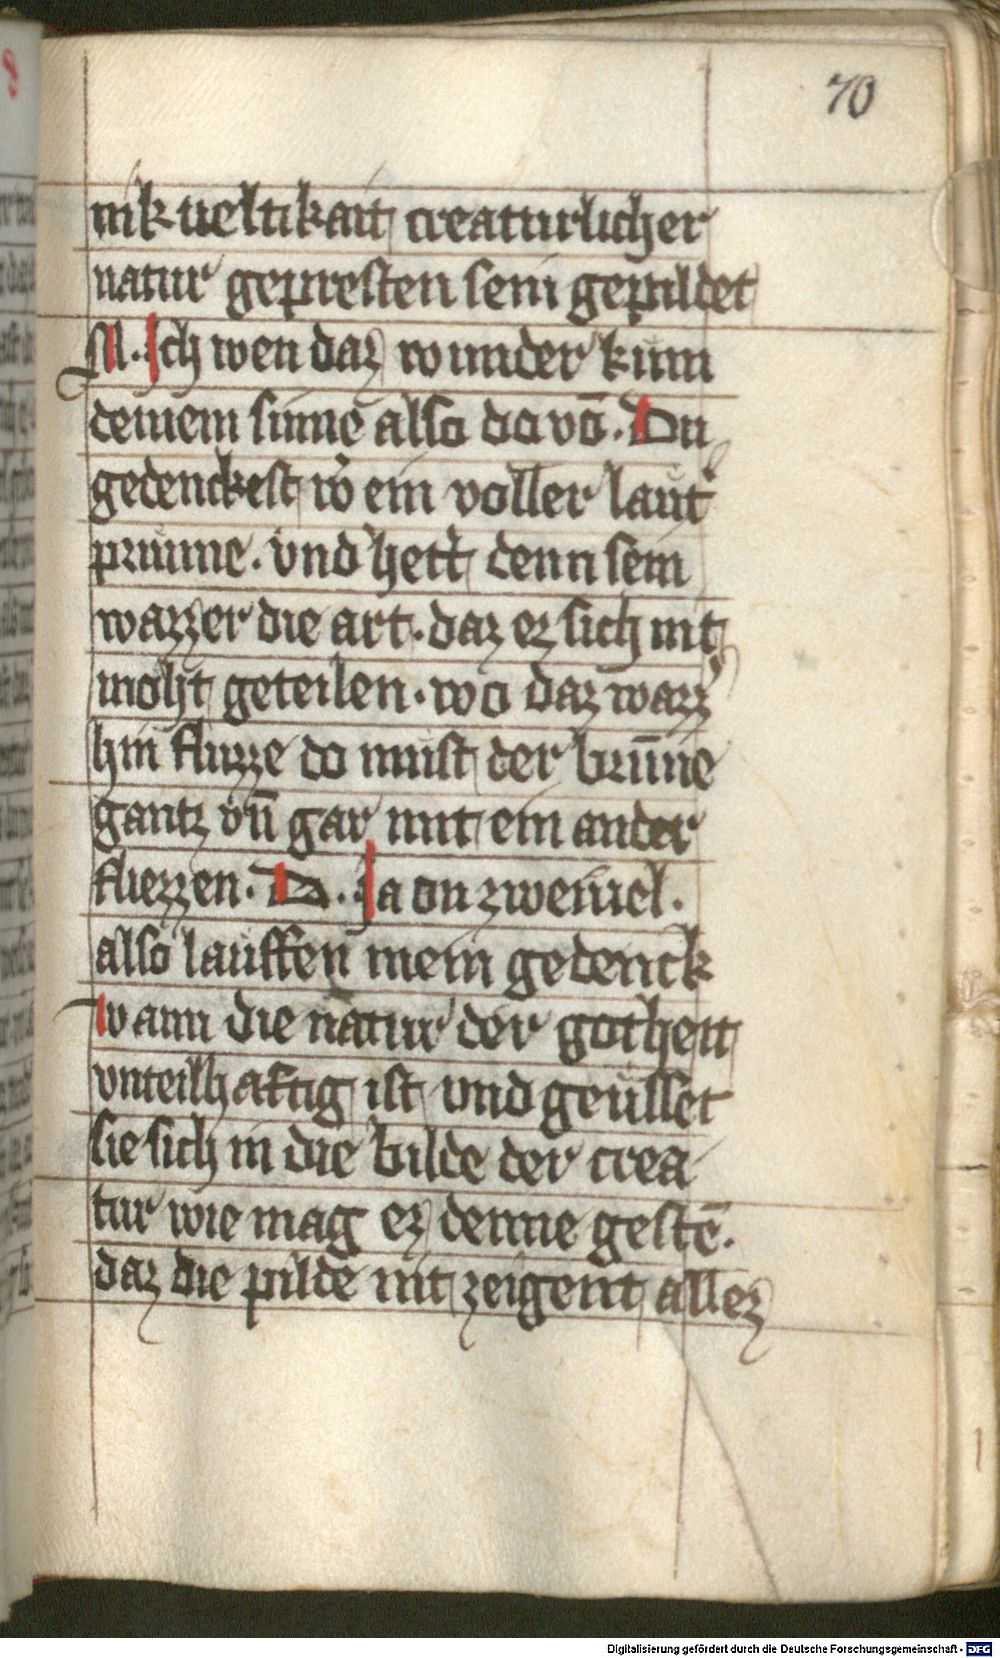 70
nik ueltikait creaturlicher
natur gepresten sein gepildet
M. Ich wen daz wunder kum
deinem sinne also do vō. Du
gedenckest w ein voller laut
prunne. vnd hett denn sein
wazzer die art. daz ez sich nit
moht geteilen. wo daz wazz
hin fluzze do must der brūne
gantz vn̄ gar mit ein ander
fliezzen. D. Ja on zweiuel.
also lauffen mein gedenck
wann die natur der gotheit
vnteilhaftig ist vnd geusset
sie sich in die bilde der crea
tur wie mag ez denne gestē.
daz die pilde nit zeigent allez
Digitalisierung gefördert durch die Deutsche Forschungsgemeinschaft - DFG